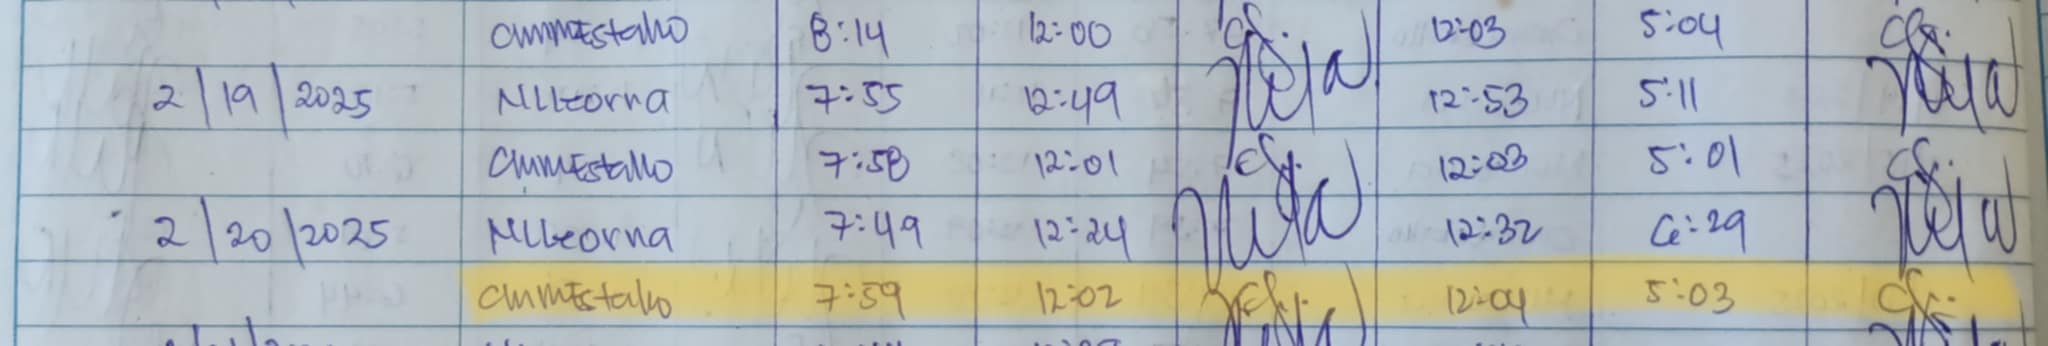 CMMEstallo 8:14 12:00 12:03 5:04
2/19/2025 NLLeorna 7:55 12:49 12:53 5:11
CMMEstallo 7:58 12:01 12:03 5:01
2/20/2025 NLLeorna 7:49 12:24 12:32 6:29
CMMEstallo 7:59 12:02 12:04 5:03